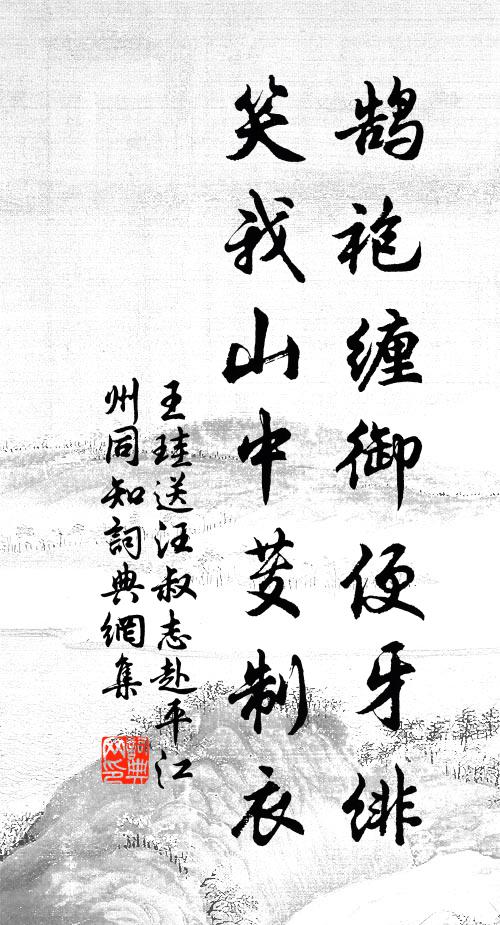 鹄袍缠御便牙绯
笑我山中芰制衣
王珪送汪叔志赴平江
州同知詞典網集
詞典網印